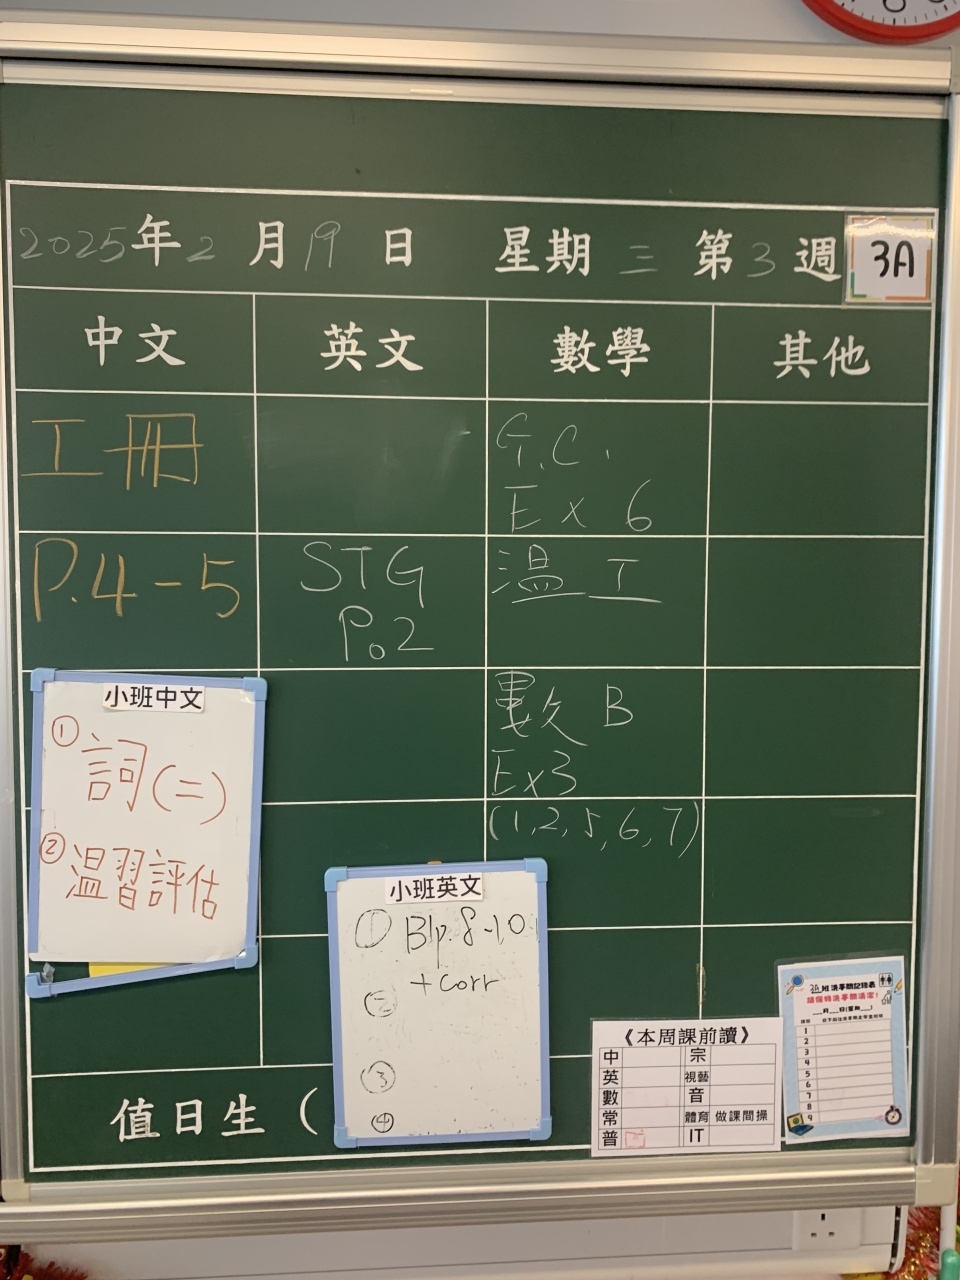 2025年2月19日 星期三 第3週 3A
中文 英文 數學 其他
工冊
P.4-5
STG
P.2
G.C.
Ex 6
温工
數B
Ex3
(1,2,5,6,7)
小班中文
① 詞(二)
② 温習評估
小班英文
① Blp.8-10
+corr
②
③
④
值日生 (
《本周課前讀》
中 宗
英 視藝
數 音
常 體育 做課間操
普 IT
3A班洗手間記錄表
請保持洗手間清潔!
___月___日(星期___)
1
2
3
4
5
6
7
8
9